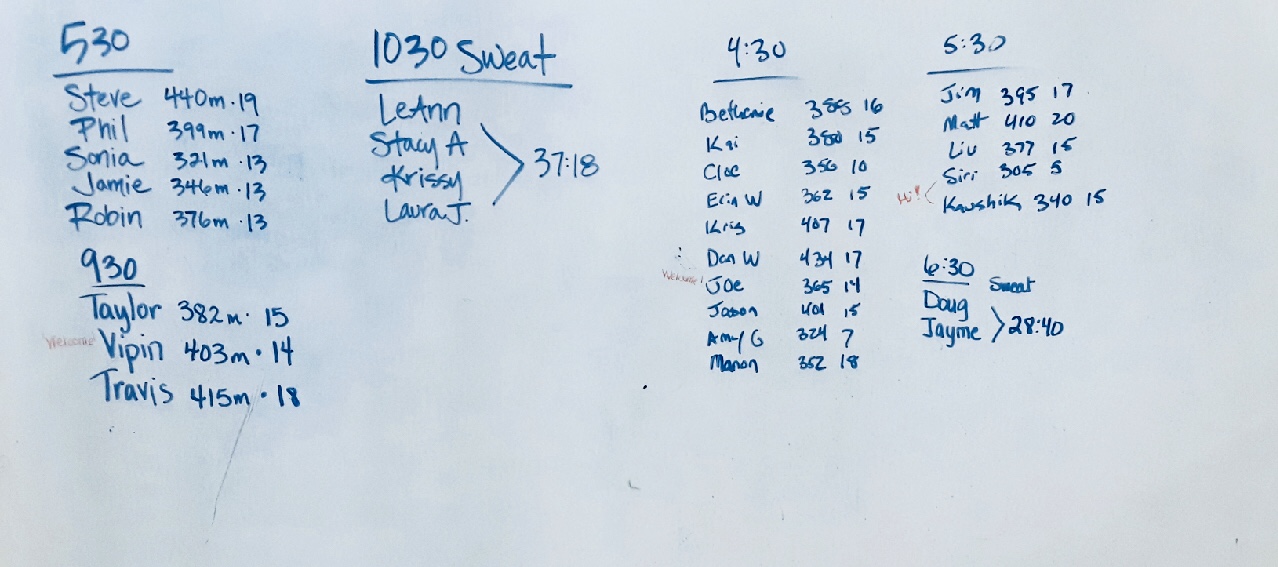 530
Steve 440m · 19
Phil 399m · 17
Sonia 321m · 13
Jamie 346m · 13
Robin 376m · 13
930
Taylor 382m · 15
Welcome Vipin 403m · 14
Travis 415m · 18
1030 Sweat
LeAnn
Stacy A
Krissy
Laura J.
37:18
4:30
Bethanie 385 16
Kai 380 15
Cloe 356 10
Erin W 362 15
Kris 407 17
Dan W 434 17
Welcome! Joe 365 14
Jason 401 15
Amy G 324 7
Manon 352 18
5:30
Jim 395 17
Matt 410 20
Liv 377 15
Siri 305 5
Hi! Kaushik 340 15
6:30 Sweat
Doug
Jayme
28:40